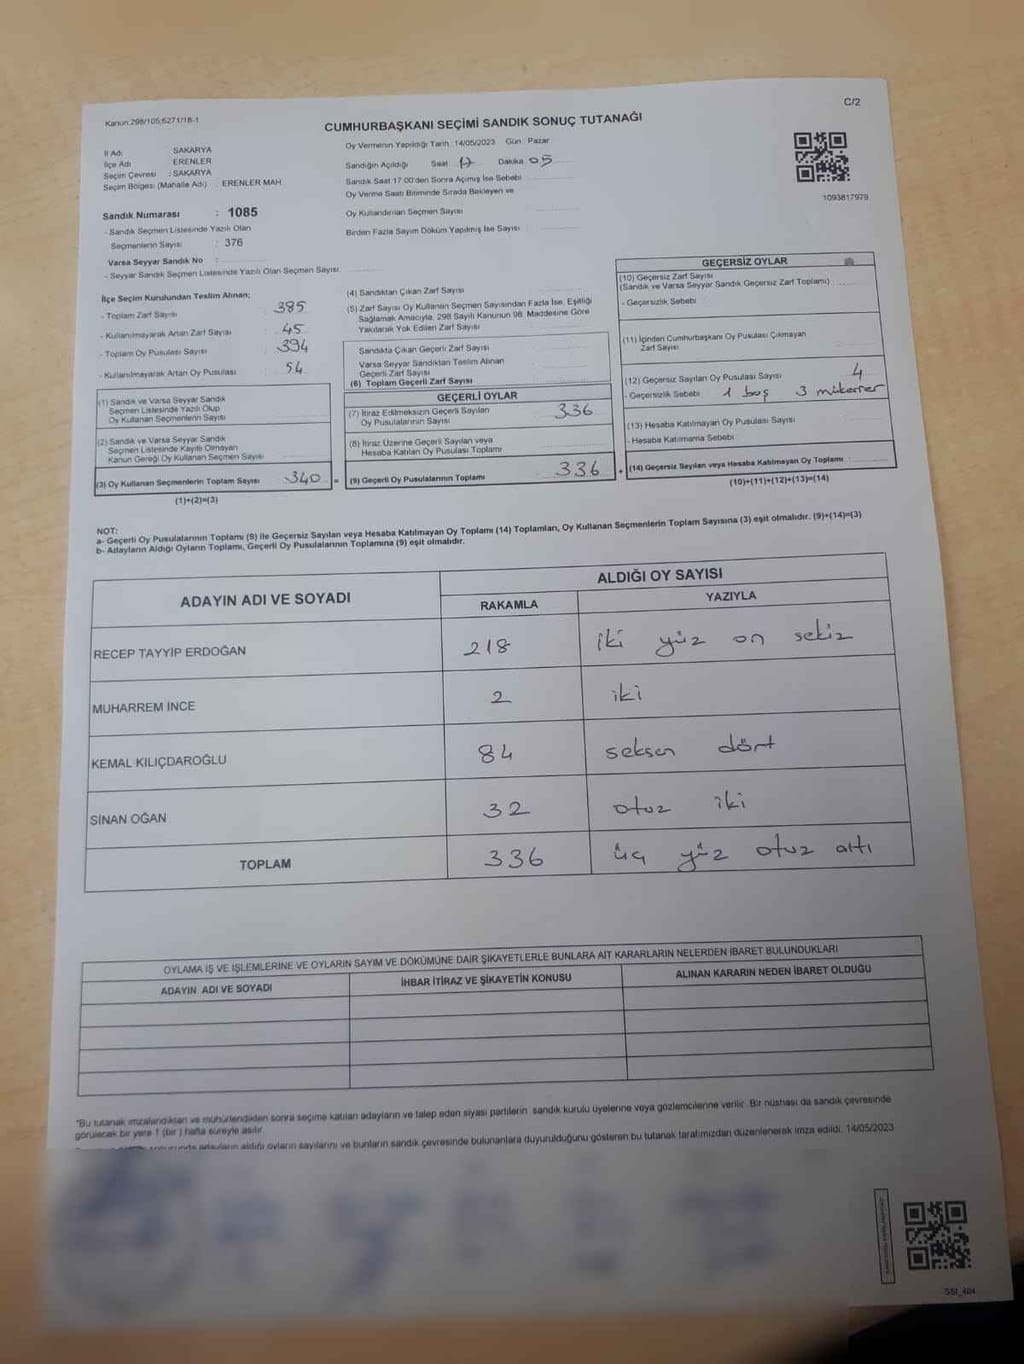 C/2
Kanun:298/105;6271/18-1
CUMHURBAŞKANI SEÇİMİ SANDIK SONUÇ TUTANAĞI
İl Adı : SAKARYA
İlçe Adı : ERENLER
Seçim Çevresi : SAKARYA
Seçim Bölgesi (Mahalle Adı) : ERENLER MAH.
Sandık Numarası : 1085
- Sandık Seçmen Listesinde Yazılı Olan
Seçmenlerin Sayısı : 376
Varsa Seyyar Sandık No :
- Seyyar Sandık Seçmen Listesinde Yazılı Olan Seçmen Sayısı:
Oy Vermenin Yapıldığı Tarih :14/05/2023 Gün : Pazar
Sandığın Açıldığı Saat 17 Dakika 05
Sandık Saat 17:00'den Sonra Açılmış İse Sebebi
Oy Verme Saati Bitiminde Sırada Bekleyen ve
Oy Kullandırılan Seçmen Sayısı
Birden Fazla Sayım Döküm Yapılmış İse Sayısı
1093817979
İlçe Seçim Kurulundan Teslim Alınan;
- Toplam Zarf Sayısı : 385
- Kullanılmayarak Artan Zarf Sayısı : 45
- Toplam Oy Pusulası Sayısı : 394
- Kullanılmayarak Artan Oy Pusulası : 54
(1) Sandık ve Varsa Seyyar Sandık
Seçmen Listesinde Yazılı Olup
Oy Kullanan Seçmenlerin Sayısı
(2) Sandık ve Varsa Seyyar Sandık
Seçmen Listesinde Kayıtlı Olmayan
Kanun Gereği Oy Kullanan Seçmen Sayısı
(3) Oy Kullanan Seçmenlerin Toplam Sayısı 340 =
(1)+(2)=(3)
(4) Sandıktan Çıkan Zarf Sayısı
(5) Zarf Sayısı Oy Kullanan Seçmen Sayısından Fazla İse, Eşitliği
Sağlamak Amacıyla, 298 Sayılı Kanunun 98. Maddesine Göre
Yakılarak Yok Edilen Zarf Sayısı
Sandıkta Çıkan Geçerli Zarf Sayısı
Varsa Seyyar Sandıktan Teslim Alınan
Geçerli Zarf Sayısı
(6) Toplam Geçerli Zarf Sayısı
GEÇERLİ OYLAR
(7) İtiraz Edilmeksizin Geçerli Sayılan
Oy Pusulalarının Sayısı 336
(8) İtiraz Üzerine Geçerli Sayılan veya
Hesaba Katılan Oy Pusulası Toplamı
(9) Geçerli Oy Pusulalarının Toplamı 336 +
GEÇERSİZ OYLAR
(10) Geçersiz Zarf Sayısı
(Sandık ve Varsa Seyyar Sandık Geçersiz Zarf Toplamı)
- Geçersizlik Sebebi
(11) İçinden Cumhurbaşkanı Oy Pusulası Çıkmayan
Zarf Sayısı
(12) Geçersiz Sayılan Oy Pusulası Sayısı 4
- Geçersizlik Sebebi 1 boş 3 mükerrer
(13) Hesaba Katılmayan Oy Pusulası Sayısı
- Hesaba Katılmama Sebebi
(14) Geçersiz Sayılan veya Hesaba Katılmayan Oy Toplamı :
(10)+(11)+(12)+(13)=(14)
NOT:
a- Geçerli Oy Pusulalarının Toplamı (9) ile Geçersiz Sayılan veya Hesaba Katılmayan Oy Toplamı (14) Toplamları, Oy Kullanan Seçmenlerin Toplam Sayısına (3) eşit olmalıdır. (9)+(14)=(3)
b- Adayların Aldığı Oyların Toplamı, Geçerli Oy Pusulalarının Toplamına (9) eşit olmalıdır.
ADAYIN ADI VE SOYADI
ALDIĞI OY SAYISI
RAKAMLA YAZIYLA
RECEP TAYYİP ERDOĞAN 218 iki yüz on sekiz
MUHARREM İNCE 2 iki
KEMAL KILIÇDAROĞLU 84 seksen dört
SİNAN OĞAN 32 otuz iki
TOPLAM 336 üç yüz otuz altı
OYLAMA İŞ VE İŞLEMLERİNE VE OYLARIN SAYIM VE DÖKÜMÜNE DAİR ŞİKAYETLERLE BUNLARA AİT KARARLARIN NELERDEN İBARET BULUNDUKLARI
ADAYIN ADI VE SOYADI İHBAR İTİRAZ VE ŞİKAYETİN KONUSU ALINAN KARARIN NEDEN İBARET OLDUĞU
*Bu tutanak imzalandıktan ve mühürlendikten sonra seçime katılan adayların ve talep eden siyasi partilerin sandık kurulu üyelerine veya gözlemcilerine verilir. Bir nüshası da sandık çevresinde
görülecek bir yere 1 (bir ) hafta süreyle asılır.
adayların aldığı oyların sayılarını ve bunların sandık çevresinde bulunanlara duyurulduğunu gösteren bu tutanak tarafımızdan düzenlenerek imza edildi. 14/05/2023